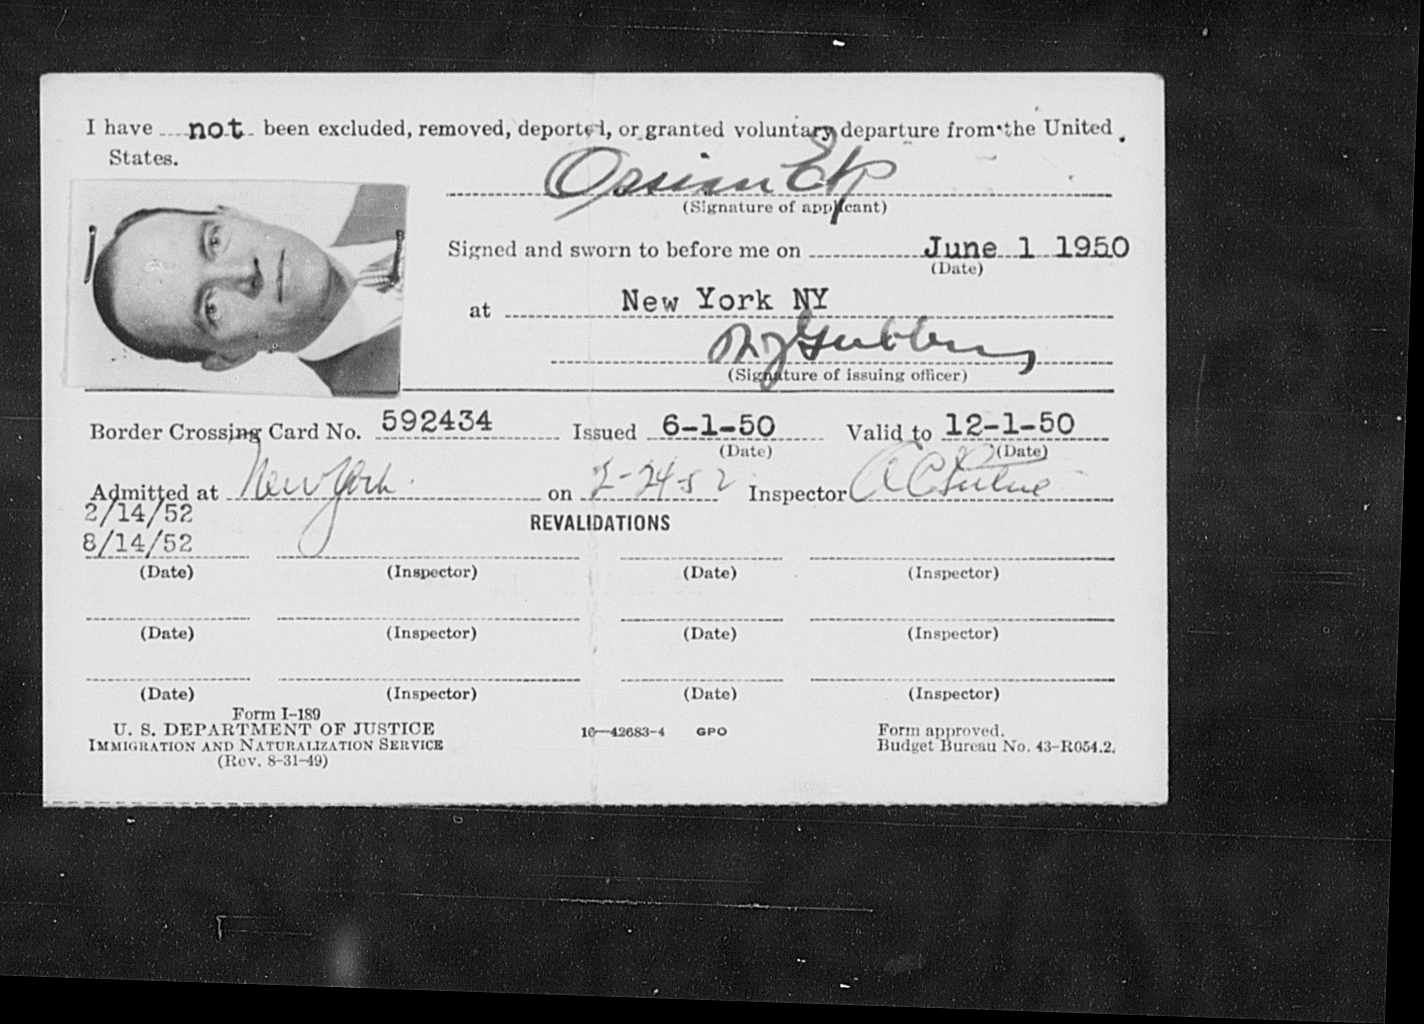 I have not been excluded, removed, deported, or granted voluntary departure from the United
States.
Ossian Ek
(Signature of applicant)
Signed and sworn to before me on June 1 1950
(Date)
at New York NY
(Signature of issuing officer)
Border Crossing Card No. 592434 Issued 6-1-50 Valid to 12-1-50
(Date) (Date)
Admitted at New York on 2-24-52 Inspector
2/14/52
REVALIDATIONS
8/14/52
(Date) (Inspector) (Date) (Inspector)
(Date) (Inspector) (Date) (Inspector)
(Date) (Inspector) (Date) (Inspector)
Form I-189
U. S. DEPARTMENT OF JUSTICE 16—42683-4 GPO Form approved.
IMMIGRATION AND NATURALIZATION SERVICE Budget Bureau No. 43-R054.2.
(Rev. 8-31-49)